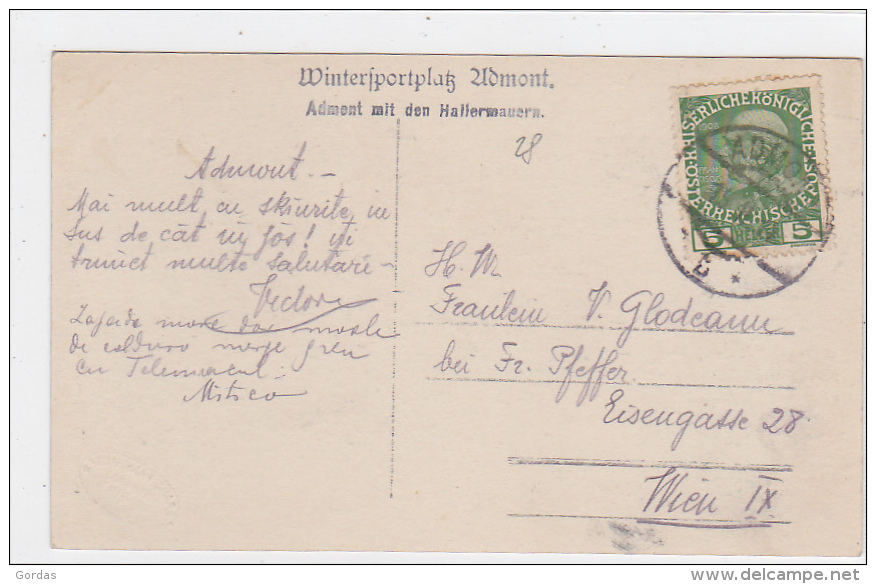 Wintersportplatz Admont.
Admont mit den Hallermauern.
28
KAISERLICHE KÖNIGLICHE ÖSTERREICHISCHE POST
1908
5 HELLER 5
ADM
Admont. —
Mai mult cu skiurile in
sus de cât in jos! iți
trimet multe salutari —
Victor
Zapada mare dar moale
de caldura merge greu
cu Telemarcul.
Mitica
H. W.
Fraulein V. Glodeanu
bei Fr. Pfeffer
Eisengasse 28.
Wien IX
Gordas
delcampe.net